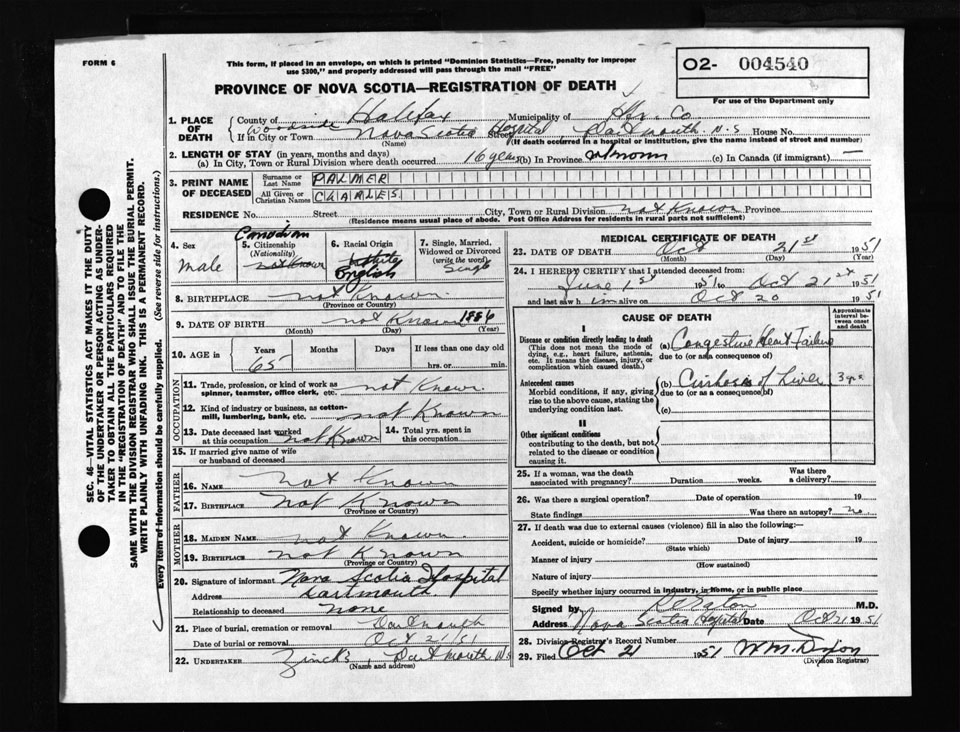 FORM 6
This form, if placed in an envelope, on which is printed "Dominion Statistics—Free, penalty for improper
use $300," and properly addressed will pass through the mail "FREE"
O2- 004540
PROVINCE OF NOVA SCOTIA—REGISTRATION OF DEATH
For use of the Department only
1. PLACE OF DEATH
County of Halifax Municipality of Hx. Co
Woodside
If in City or Town Nova Scotia Hospital, Dartmouth N.S House No.
(Name) (If death occurred in a hospital or institution, give the name instead of street and number)
2. LENGTH OF STAY (in years, months and days)
(a) In City, Town or Rural Division where death occurred 16 years (b) In Province unknown (c) In Canada (if immigrant) —
3. PRINT NAME OF DECEASED
Surname or Last Name PALMER
All Given or Christian Names CHARLES
RESIDENCE No. Street City, Town or Rural Division not Known Province
(Residence means usual place of abode. Post Office Address for residents in rural parts not sufficient)
4. Sex
male
5. Citizenship (Nationality)
Canadian
not Known
6. Racial Origin
English
7. Single, Married, Widowed or Divorced (write the word)
Single
8. BIRTHPLACE not Known.
(Province or Country)
9. DATE OF BIRTH not Known 1886
(Month) (Day) (Year)
10. AGE in Years Months Days If less than one day old
65 hrs. or min.
OCCUPATION
11. Trade, profession, or kind of work as spinner, teamster, office clerk, etc. not Known
12. Kind of industry or business, as cotton-mill, lumbering, bank, etc. not Known
13. Date deceased last worked at this occupation not Known
14. Total yrs. spent in this occupation
15. If married give name of wife or husband of deceased
FATHER
16. NAME not Known
17. BIRTHPLACE not Known
(Province or Country)
MOTHER
18. MAIDEN NAME not Known.
19. BIRTHPLACE not Known
(Province or Country)
20. Signature of informant Nova Scotia Hospital
Address Dartmouth.
Relationship to deceased none
21. Place of burial, cremation or removal Dartmouth
Date of burial or removal Oct 21/51
22. UNDERTAKER Zinck's, Dartmouth N.S
(Name and address)
MEDICAL CERTIFICATE OF DEATH
23. DATE OF DEATH Oct 21st 1951
(Month) (Day)
24. I HEREBY CERTIFY that I attended deceased from
June 1st 1951 to Oct 21st 1951
and last saw him alive on Oct 20 1951
CAUSE OF DEATH
Approximate interval between onset and death
I
Disease or condition directly leading to death
(This does not mean the mode of dying, e.g., heart failure, asthenia, etc. It means the disease, injury, or complication which caused death.)
(a) Congestive Heart Failure
due to (or as a consequence of)
Antecedent causes
Morbid conditions, if any, giving rise to the above cause, stating the underlying condition last.
(b) Cirrhosis of Liver
due to (or as a consequence of)
(c)
II
Other significant conditions
contributing to the death, but not related to the disease or condition causing it.
25. If a woman, was the death associated with pregnancy? Duration weeks. Was there a delivery?
26. Was there a surgical operation? Date of operation 19
State findings Was there an autopsy? no
27. If death was due to external causes (violence) fill in also the following:—
Accident, suicide or homicide? Date of injury 19
(State which)
Manner of injury
(How sustained)
Nature of injury
Specify whether injury occurred in industry, in home, or in public place
Signed by M.D.
Address Nova Scotia Hospital Date Oct 21 1951
28. Division Registrar's Record Number
29. Filed Oct 21 1951 W.M. Dixon
(Division Registrar)
SEC. 46—VITAL STATISTICS ACT MAKES IT THE DUTY
OF THE UNDERTAKER OR PERSON ACTING AS UNDER-
TAKER TO OBTAIN ALL THE PARTICULARS REQUIRED
IN THE "REGISTRATION OF DEATH" AND TO FILE THE
SAME WITH THE DIVISION REGISTRAR WHO SHALL ISSUE THE BURIAL PERMIT.
WRITE PLAINLY WITH UNFADING INK. THIS IS A PERMANENT RECORD.
Every item of information should be carefully supplied. (See reverse side for instructions.)